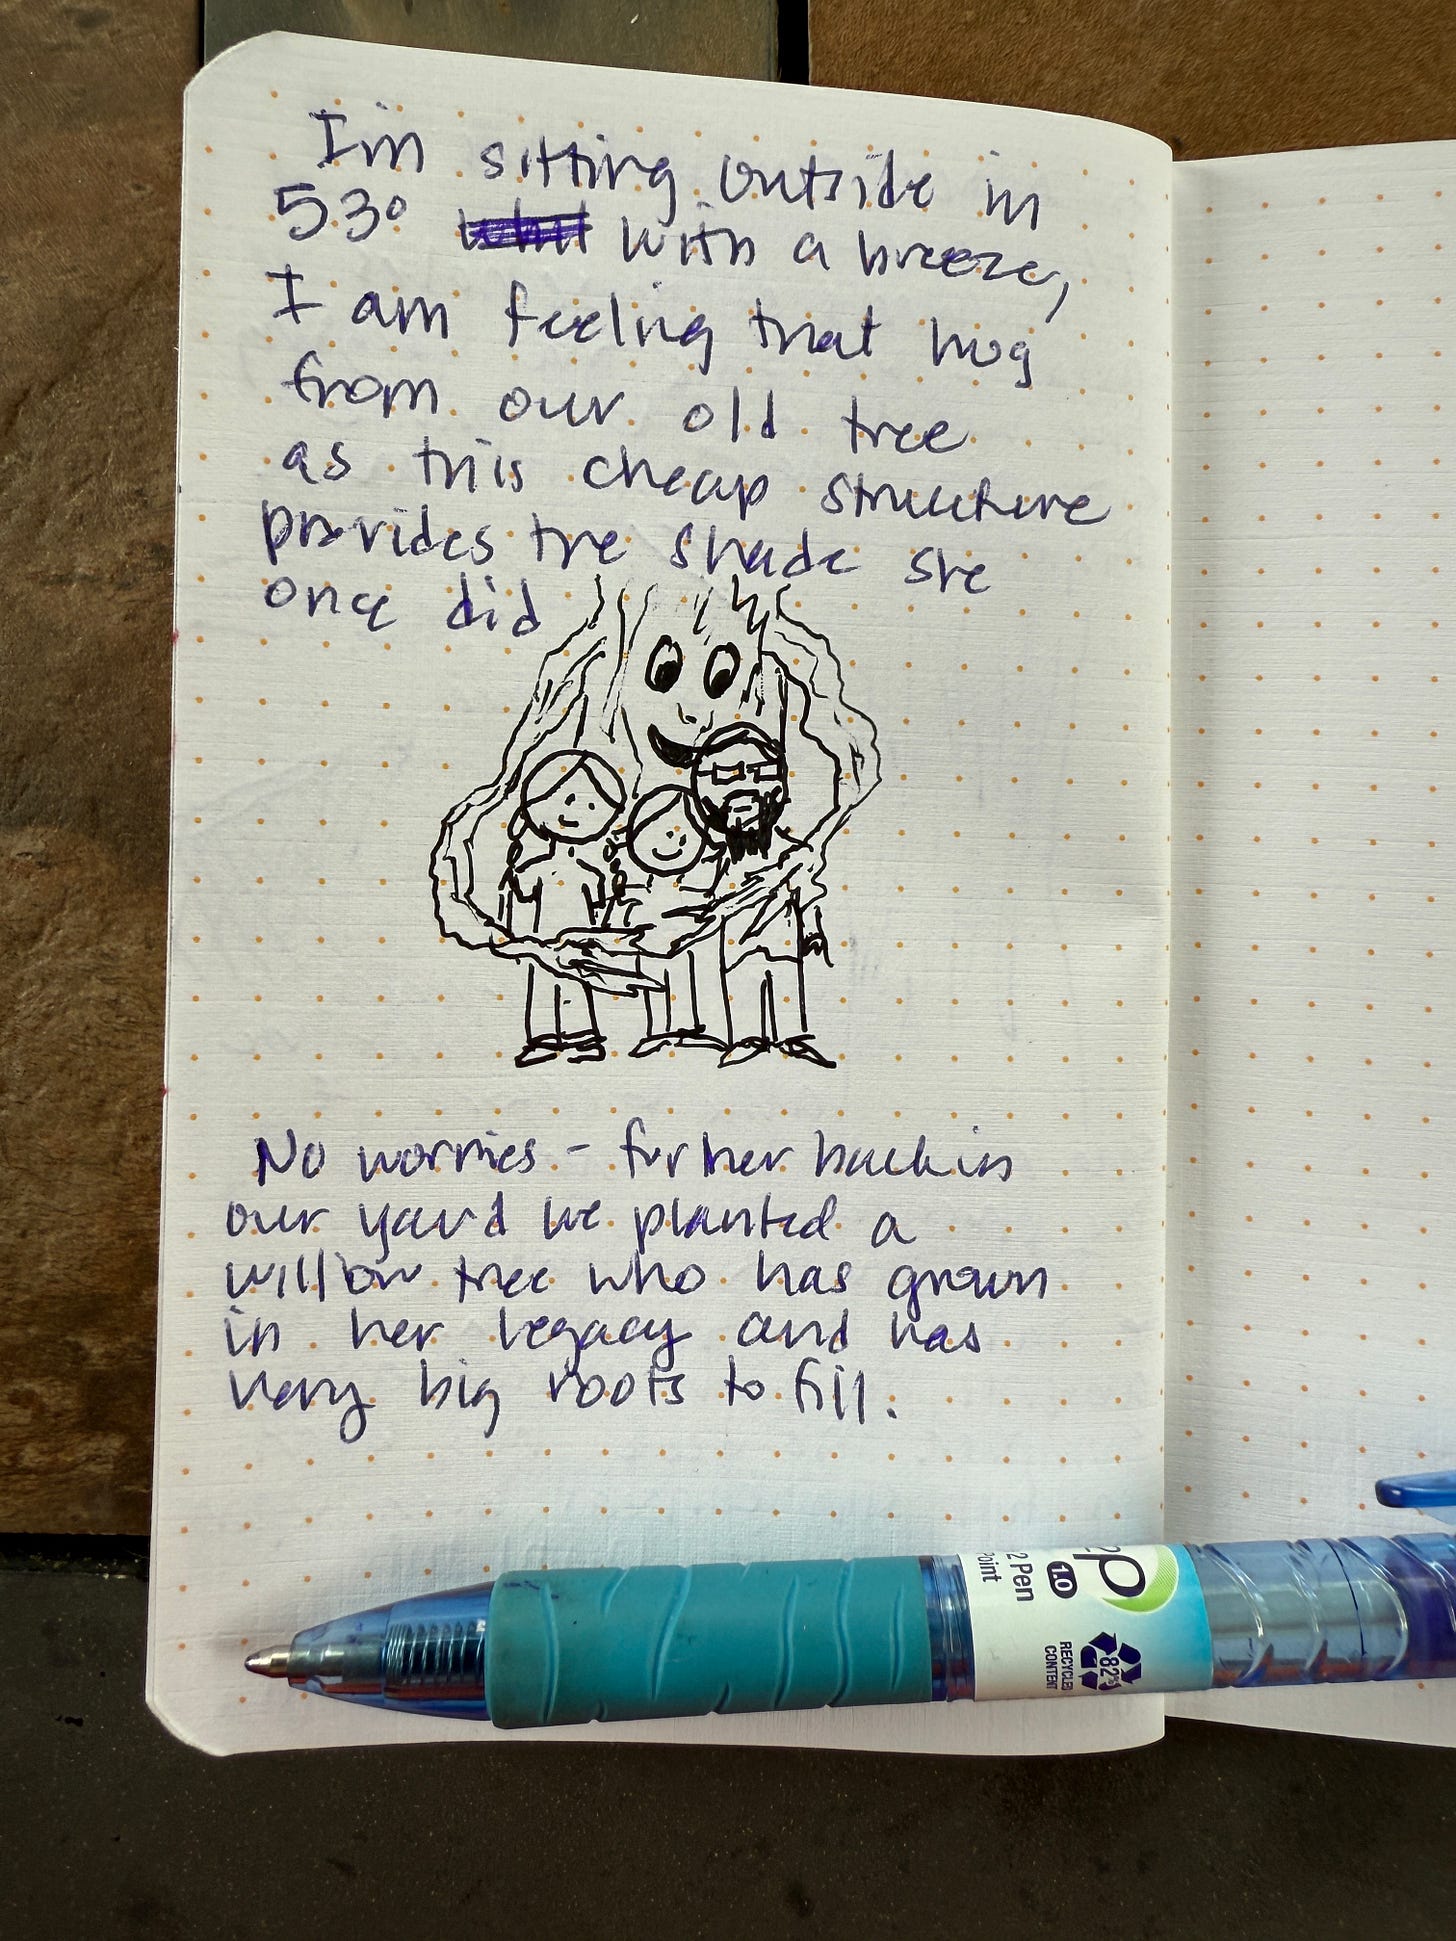 I'm sitting outside in
53° with a breeze,
I am feeling that hug
from our old tree
as this cheap structure
provides the shade she
once did
No worries - further back in
our yard we planted a
willow tree who has grown
in her legacy and has
very big roots to fill.
2 Pen
1.0
82%
RECYCLED
CONTENT